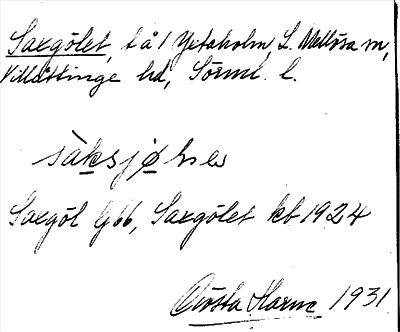 Saxgölet, t å 1 Yxtaholm, L. Mellösa sn,
Villåttinge hd, Sörml. l.
säksjøɷle
Saxgöl G66, Saxgölet kb 1924
Gösta Harne 1931